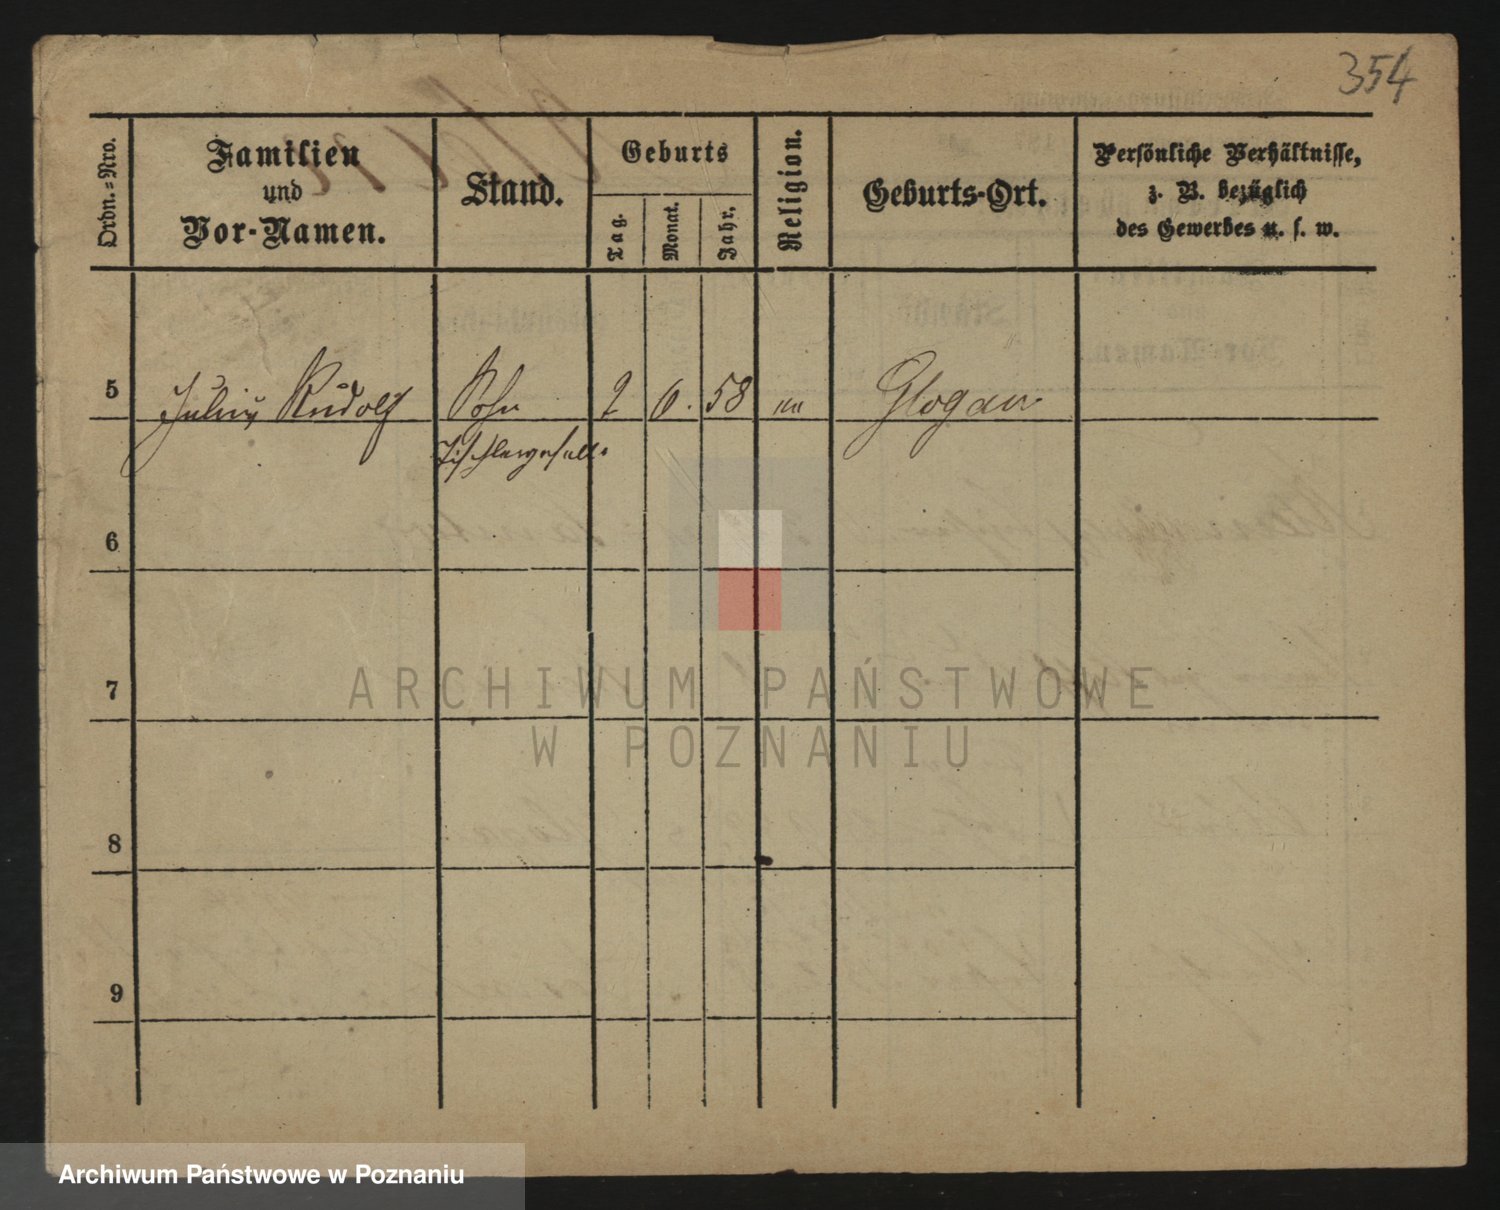 354
Ordn.=Nro.
Familien
und
Vor-Namen.
Stand.
Geburts
Tag.
Monat.
Jahr.
Religion.
Geburts-Ort.
Persönliche Verhältnisse,
z. B. bezüglich
des Gewerbes u. s. w.
5 Julius Rudolf Sohn 2 6. 58 " " Glogau
Tischlergesell.
6
7
8
9
ARCHIWUM PAŃSTWOWE
W POZNANIU
Archiwum Państwowe w Poznaniu